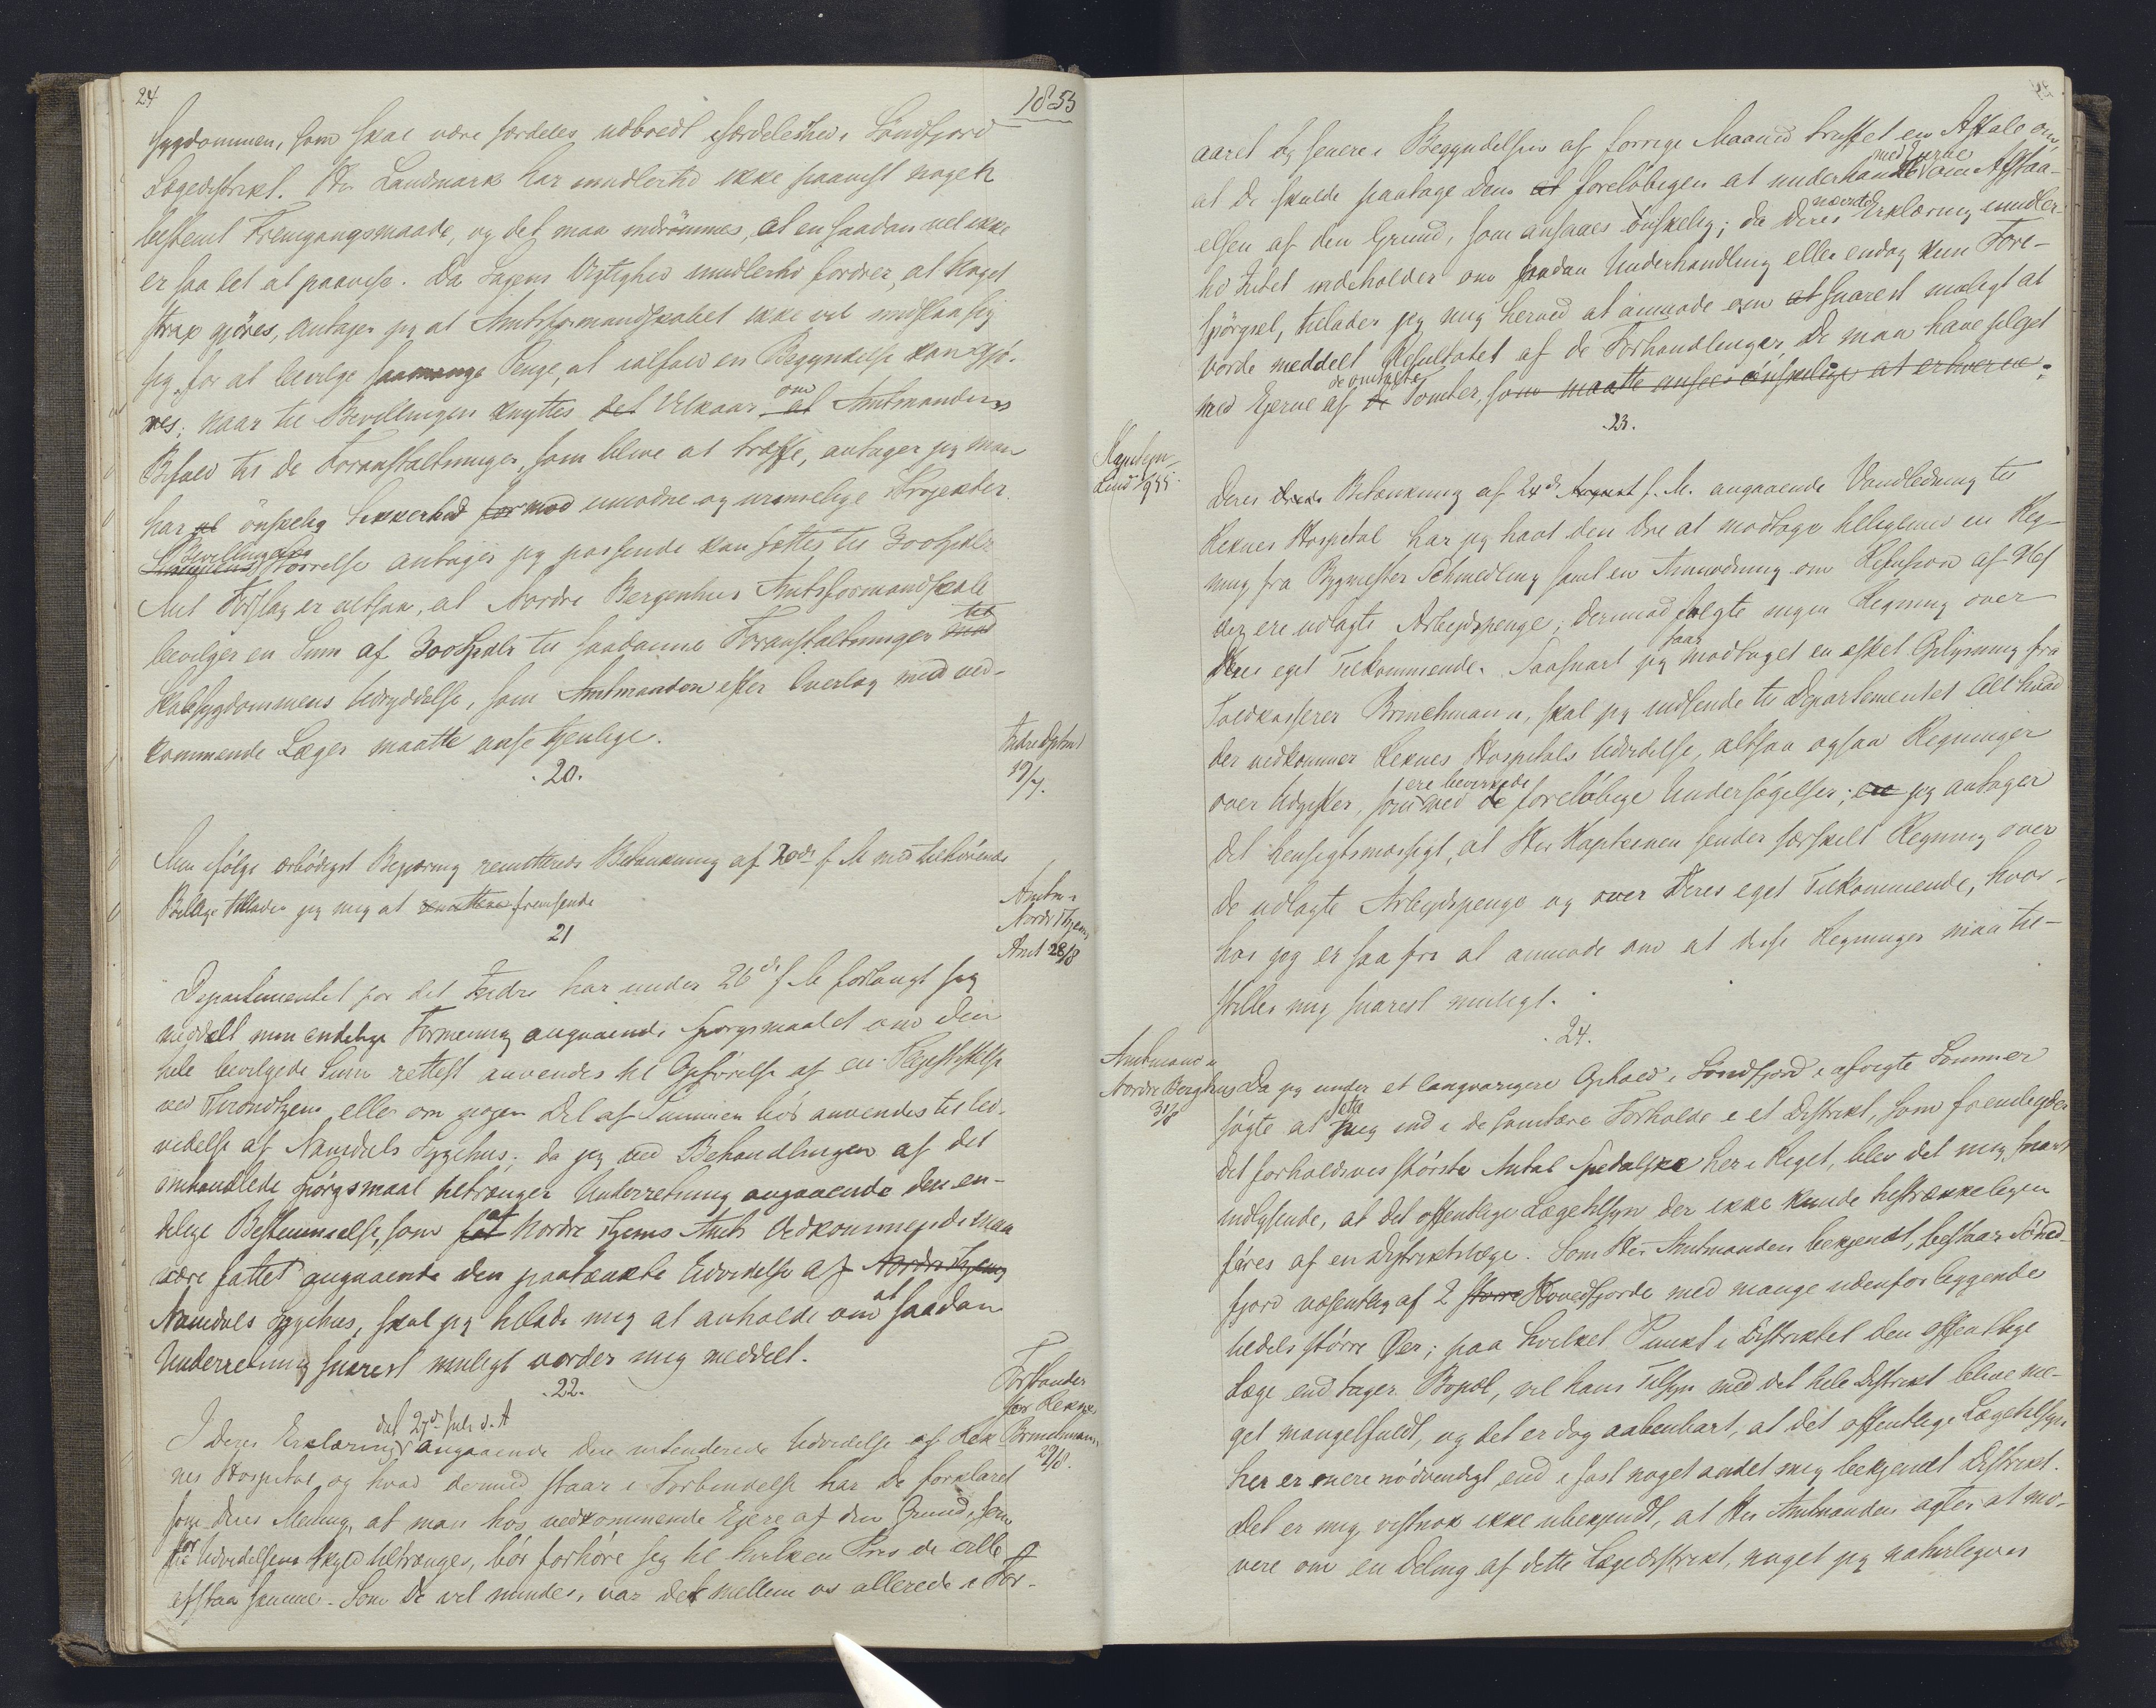 24
1855
Sygdommen, som skal være særdeles udbredt isærdeleshed i Söndfjord
Lægedistrikt. Hr Landmark har imidlertid ikke paavist nogen
bestemt Fremgangsmaade, og det maa indrömmes, at en saadan vel ikke
er saa let at paavise. Da Sagens Vigtighed imidlertid fordrer, at Noget
strax gjöres, antager jeg at Amtsformandskabet ikke vil undslaa sig
sig for at bevilge saamange Penge, at ialfald en Begyndelse kan gjö-
res; naar til Bevillingen knyttes det Vilkaar om at Amtmandens
Bifald til de Foranstaltninger, som blive at træffe, antager jeg man
har al önskelig Sikkerhed for mod umodne og urimelige Projekter.
Bevillingens Störrelse antager jeg passende kan sættes til 300 Spdlr
Mit Forslag er altsaa, at Nordre Bergenhus Amtsformandskab
bevilger en Sum af 300 Spdlr til saadanne Foranstaltninger mod til
Skabsygdommens Udryddelse, som Amtmanden efter Overlæg med ved-
kommende Læger maatte anse tjenlige.
.20.
Indre Dptmt
19/7.
Min ifölge ærbödigst Begjæring remitterede Betænkning af 20de f M med tilhörende
Bilage tillader jeg mig at remittere fremsende
21
Amtm i
Nordr Thjems
Amt 28/8
Departementet for det Indre har under 26de f M forlangt sig
meddelt min endelige Formening angaaende Spörgsmaalet om den
hele bevilgede Sum rettest anvendes til Opförelse af en Plejestiftelse
ved Throndhjem, eller om nogen Del af Summen bör anvendes til Ud-
videlse af Namdals Sygehus; da jeg ved Behandlingen af det
omhandlede Spörgsmaal tiltrænger Underretning angaaende den en-
delige Bestemmelse, som fat af Nordre Thjems Amts Vedkommende maa
være fattet angaaende den paatænkte Udvidelse af Nordre Thjems
Namdals Sygehus, skal jeg tillade mig at anholde om at saadan
Underretning snarest muligt vorder mig meddelt.
.22.
Forstander
for Reknes
Brinchmann
29/8.
I Deres Erklæring dat 27de Juli d. A angaaende den intenderede Udvidelse af Rek
nes Hospital, og hvad dermed staar i Forbindelse har De forklaret
som Deres Mening, at man hos vedkommende Ejere af den Grund, som
for Udvidelsens Skyld tiltrænges, bör forhöre sig til hvilken Pris de ville
afstaa samme. Som De vel mindes, var det mellem os allerede i For-
aaret og senere i Begyndelsen af forrige Maaned truffet en Aftale om,
at De skulde paatage Dem at foreløbigen at underhandle med Ejerne om Afstaa-
elsen af den Grund, som ansaaes önskelig; da Deres nævnte Erklæring imidler-
tid Intet indeholder om saadan Underhandling eller endog kun Fore-
spörgsel, tillader jeg mig herved at anmode om at snarest muligt at
vorde meddelt Resultatet af de Forhandlinger, De maa have pleget
med Ejerne af de de omtalte Tomter, som maatte ansees önskelige at erhverve.
.23.
Kaptejn
Lund 1/9 55.
Deres Betænkning af 24de August f. M. angaaende Vandledning til
Reknes Hospital har jeg havt den Ære at modtage tilligemed en Reg-
ning fra Bygmester Schmedling samt en Anmodning om Refusion af
der ere udlagte Arbejdspenge; derimod fulgte ingen Regning over
Deres eget Tilkommende. Saasnart jeg faar modtaget en æsket Oplysning fra
Toldkasserer Brinchmann, skal jeg indsende til Departementet Alt hvad
der vedkommer Reknes Hospitals Udvidelse, altsaa ogsaa Regninger
over Udgifter, som ere bevirkede ved de foreløbige Undersögelser; jeg antager
det hensigtsmæssigt, at Hr Kapteinen sender særskilt Regning over
de udlagte Arbejdspenge og over Deres eget Tilkommende, hvor-
hos jeg er saa fri at anmode om at disse Regninger maa til-
stilles mig snarest muligt.
.24.
Amtmand i
Nordre Bergenhus
31/8
Da jeg under et langvarigere Ophold i Söndfjord i afvigte Sommer
sögte at sætte mig ind i de sanitære Forholde i et Distrikt, som frembyder
det forholdsvis störste Antal Spedalske her i Riget, blev det mig snart
indlysende, at det offentlige Lægetilsyn der ikke kunde tilstrækkeligen
föres af en Distriktslæge. Som Hr Amtmanden bekjendt, bestaar Sönd-
fjord væsentlig af 2 störe Hovedfjorde med mange udenfor liggende
tildels större Öer; paa hvilket Punkt i Distriktet den offentlige
Læge end tager Bopæl, vil hans Tilsyn med det hele Distrikt blive me-
get mangelfuldt, og det er dog aabenbart, at det offentlige Lægetilsyn
her er mere nödvendigt end i fast noget andet mig bekjendt Distrikt.
Det er mig vistnok ikke ubekjendt, at Hr Amtmanden agter at mo-
vere om en Deling af dette Lægedistrikt, noget jeg naturligvis